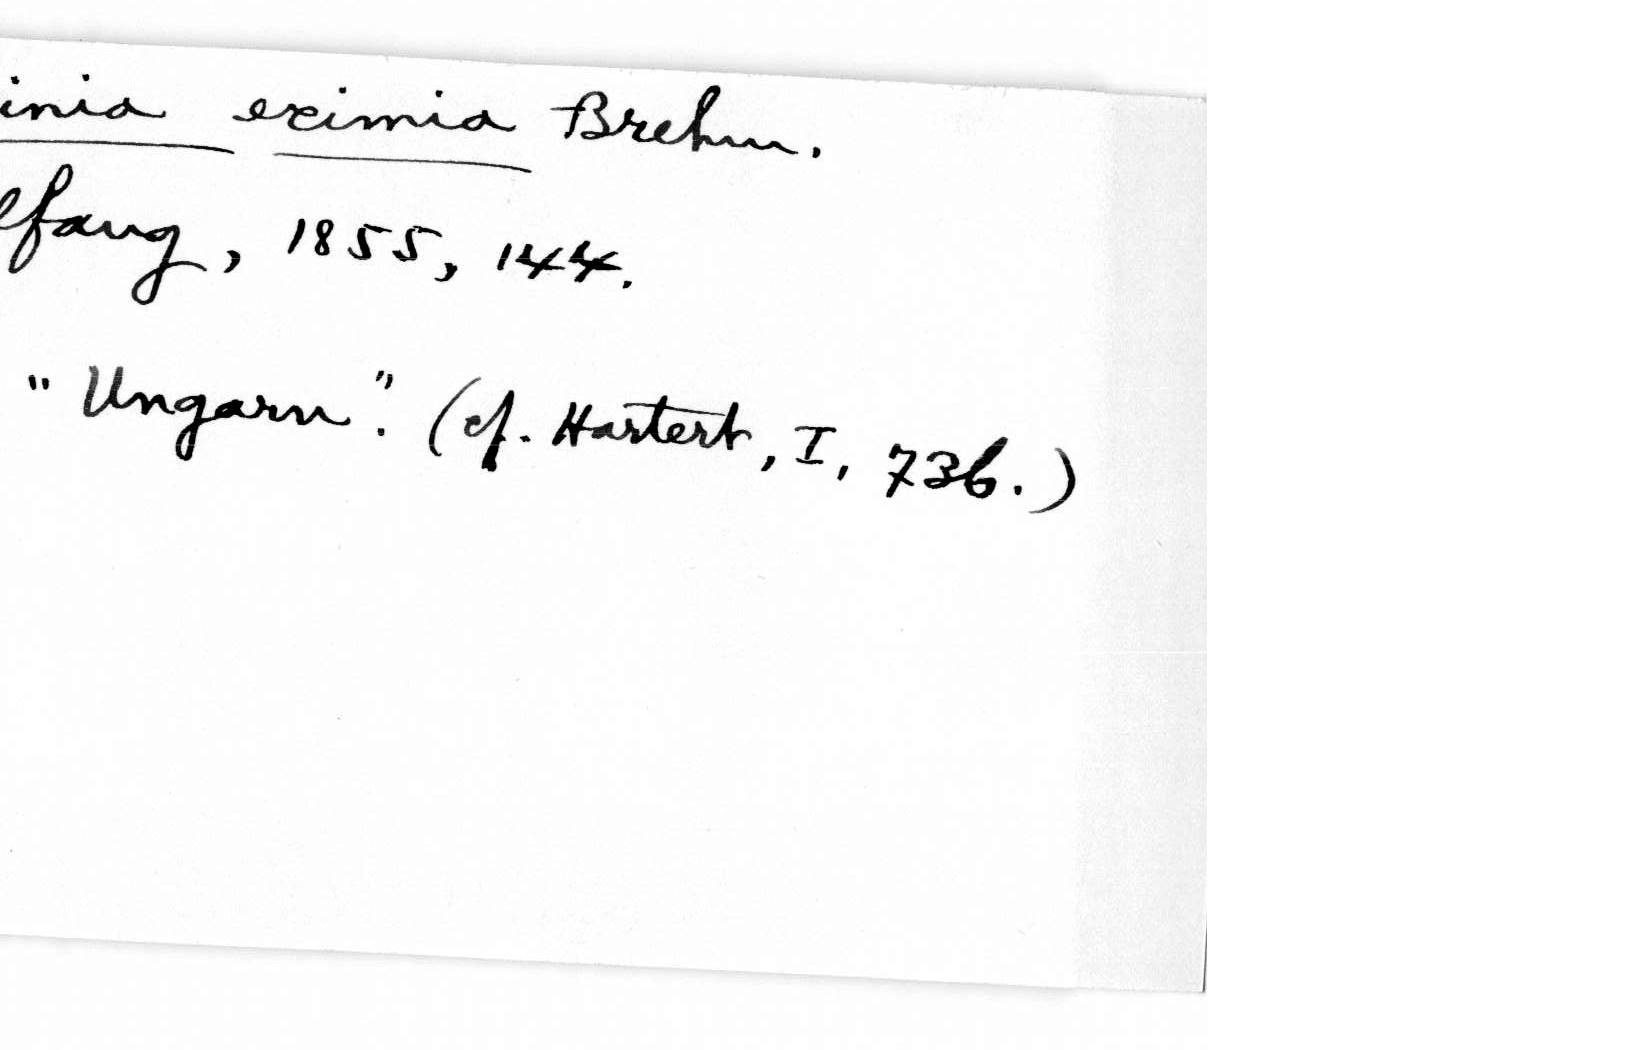 inia eximia Brehm.
lfang, 1855, 144.
"Ungarn". (cf. Hartert, I, 736.)